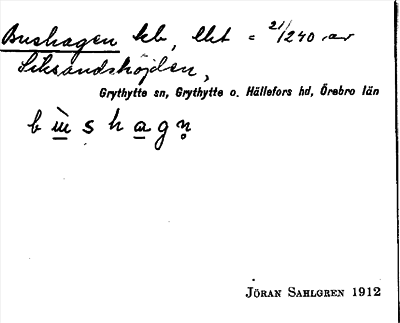 Bushagen kb, lht = 21/240 av
Siksandshöjden,
Grythytte sn, Grythytte o. Hällefors hd, Örebro län
b ɯ̀ s h a g n̥
JÖRAN SAHLGREN 1912